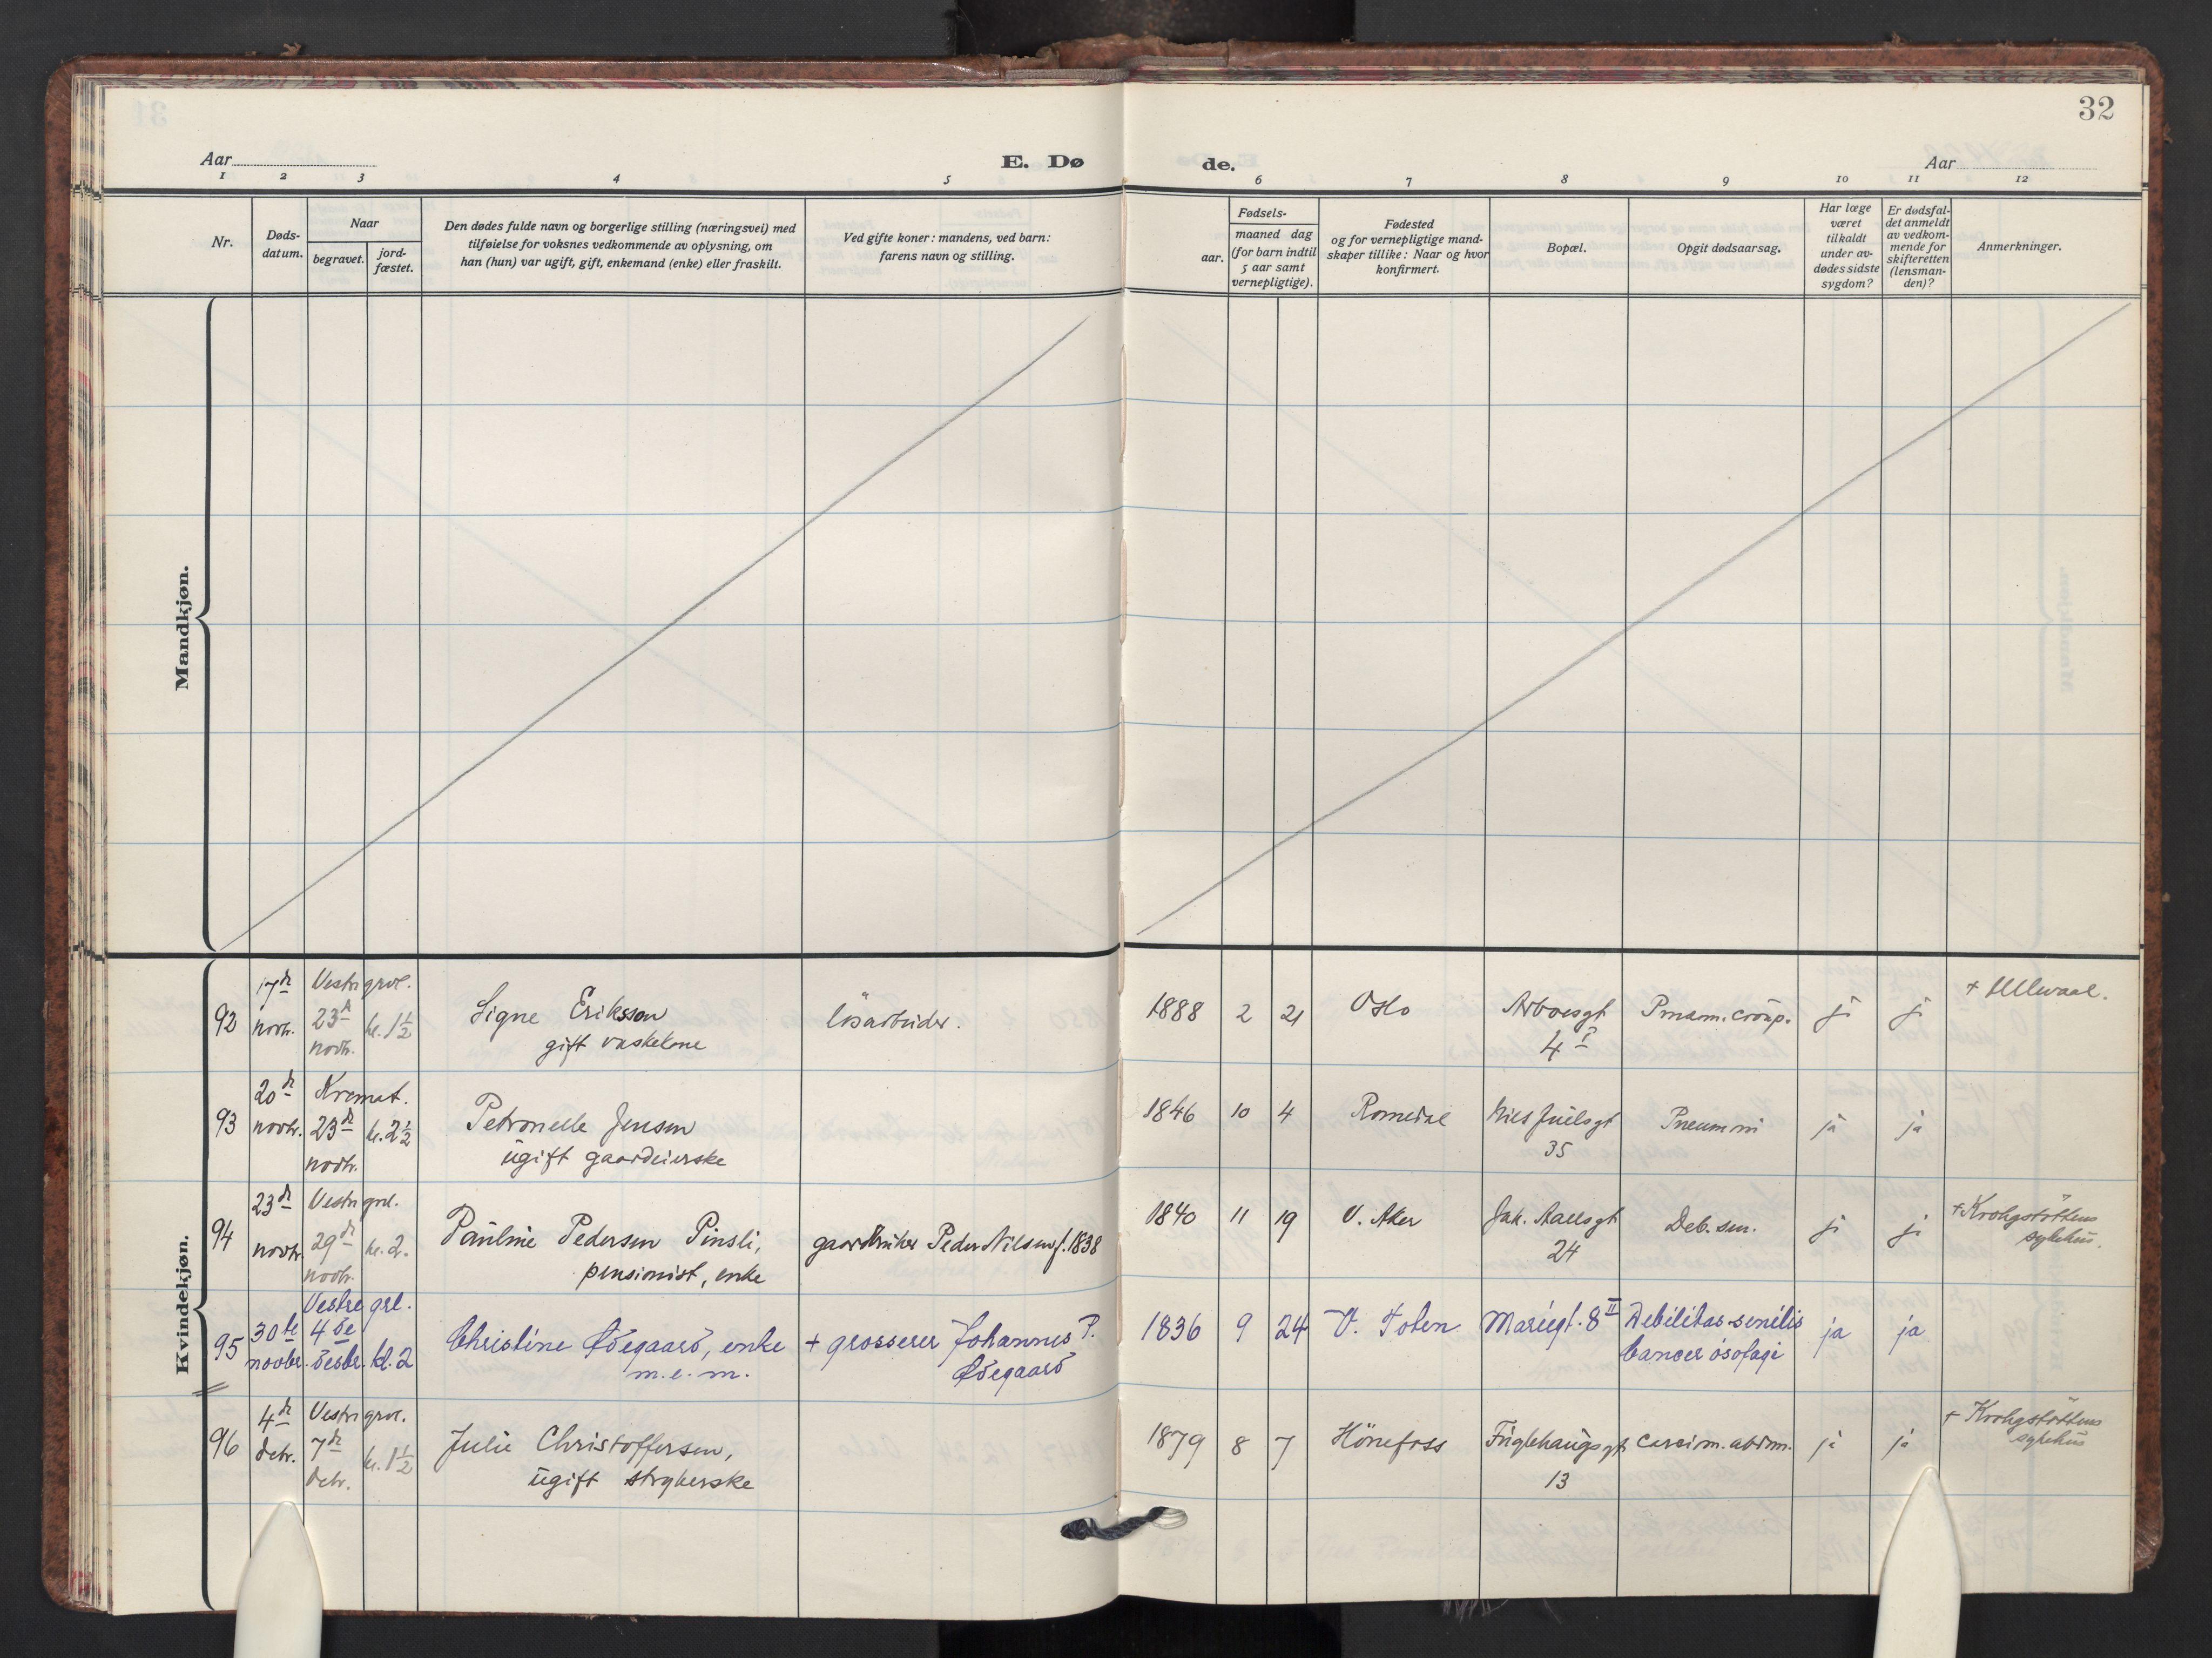 32
Aar
E. Dø
de.
Aar
1 2 3 4 5 6 7 8 9 10 11 12
Nr.
Døds-
datum.
Naar
begravet.
jord-
fæstet.
Den dødes fulde navn og borgerlige stilling (næringsvei) med
tilføielse for voksnes vedkommende av oplysning, om
han (hun) var ugift, gift, enkemand (enke) eller fraskilt.
Ved gifte koner: mandens, ved barn:
farens navn og stilling.
Fødsels-
aar.
maaned dag
(for barn indtil
5 aar samt
vernepligtige).
Fødested
og for vernepligtige mand-
skaper tillike: Naar og hvor
konfirmert.
Bopæl.
Opgit dødsaarsag.
Har læge
været
tilkaldt
under av-
dødes sidste
sygdom?
Er dødsfal-
det anmeldt
av vedkom-
mende for
skifteretten
(lensman-
den)?
Anmerkninger.
Mandkjøn.
Kvindekjøn.
92
17de
novbr.
Vestre grvl.
23de
novbr.
kl. 1½
Signe Eriksson
gift vaskekone
løsarbeider.
1888 2 21
Oslo
Arboesgt
4 I
Pneum. croup.
ja
ja
+ Ullevaal.
93
20de
novbr.
Kremat.
23de
novbr.
kl. 2½
Petronelle Jensen
ugift gaardeierske
1846 10 4
Romedal
Niels Juelsgt
35
Pneumoni
ja
ja
94
23de
novbr.
Vestre grvl.
29de
novbr.
kl. 2.
Pauline Pedersen Pinsli,
pensionist, enke
gaardbruker Peder Nilsen f. 1838
1840 11 19
V. Aker
Jak. Aallsgt
24
Deb. sen.
ja
ja
+ Krohgstøttens
sykehus.
95
30te
novbr.
Vestre grl.
4de
desbr.
kl. 2
Christine Ødegaard, enke
m. e. m.
+ grosserer Johannes P.
Ødegaard
1836 9 24
V. Toten
Mariegt. 8 II
Debilitas senilis
Cancer øsofagi
ja
ja
96
4de
debr.
Vestre grvl.
7de
debr.
kl. 1½
Julie Christoffersen,
ugift strykerske
1879 8 7
Hönefoss
Fuglehaugsgt
13
Carcinm. abdmn.
ja
ja
+ Krohgstøttens
sykehus